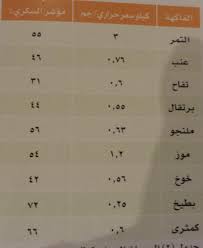 الفاكهة كيلو سعر حراري/جم مؤشر السكري٪
التمر ٣ ٥٥
عنب ٠,٧٦ ٤٦
تفاح ٠,٦ ٣١
برتقال ٠,٥٥ ٤٤
ملنجو ٠,٦٣ ٥٦
موز ١,٢ ٥٤
خوخ ٠,٥٦ ٤٢
بطيخ ٠,٢٥ ٧٢
كمثرى ٠,٦ ٦٦
جدول (٢)